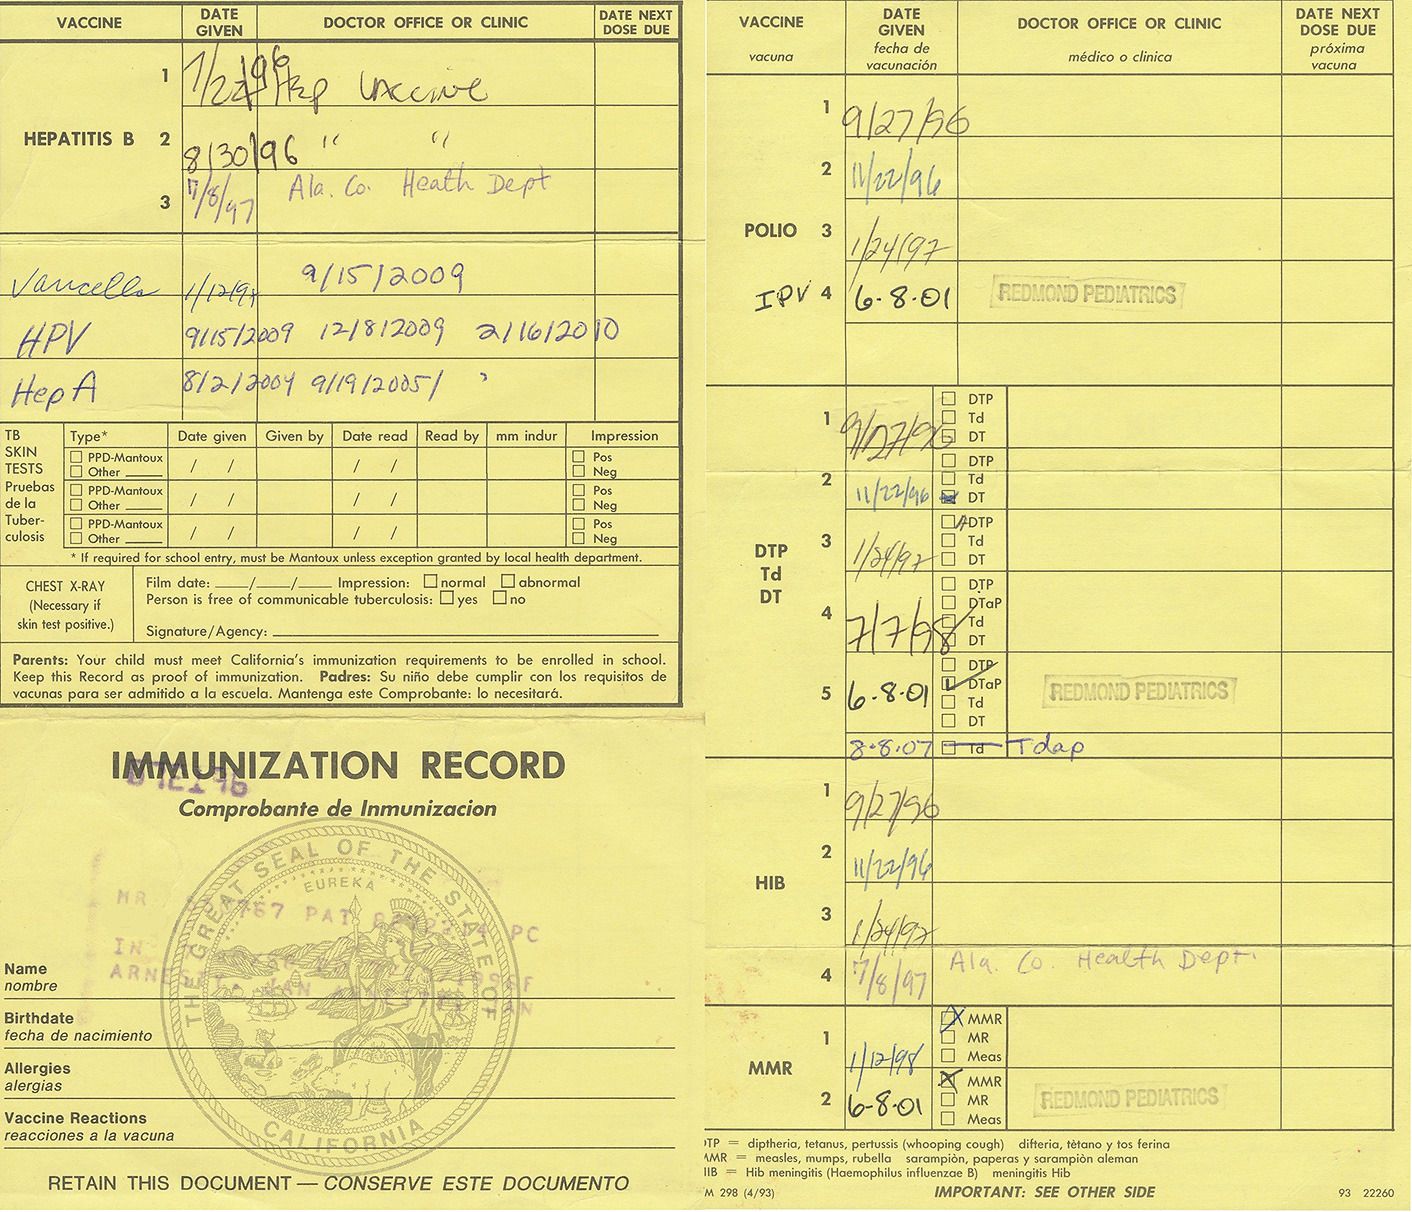 VACCINE DATE GIVEN DOCTOR OFFICE OR CLINIC DATE NEXT DOSE DUE
HEPATITIS B
1 7/27/96 Hep Vaccine
2 8/30/96 " "
3 7/8/97 Ala. Co. Heath Dept
Varicella 1/12/98 9/15/2009
HPV 9/15/2009 12/8/2009 2/16/2010
Hep A 8/2/2004 9/19/2005/
TB SKIN TESTS Pruebas de la Tuber- culosis
Type* Date given Given by Date read Read by mm indur Impression
PPD-Mantoux / / / / Pos
Other ____ Neg
PPD-Mantoux / / / / Pos
Other ____ Neg
PPD-Mantoux / / / / Pos
Other ____ Neg
* If required for school entry, must be Mantoux unless exception granted by local health department.
CHEST X-RAY
(Necessary if
skin test positive.)
Film date: ____/____/____ Impression: normal abnormal
Person is free of communicable tuberculosis: yes no
Signature/Agency:
Parents: Your child must meet California's immunization requirements to be enrolled in school.
Keep this Record as proof of immunization. Padres: Su niño debe cumplir con los requisitos de
vacunas para ser admitido a la escuela. Mantenga este Comprobante: lo necesitará.
IMMUNIZATION RECORD
Comprobante de Inmunizacion
THE GREAT SEAL OF THE STATE OF CALIFORNIA
EUREKA
MR 767 PAT PC
IN
ARNE JAN
Name
nombre
Birthdate
fecha de nacimiento
Allergies
alergias
Vaccine Reactions
reacciones a la vacuna
RETAIN THIS DOCUMENT — CONSERVE ESTE DOCUMENTO
VACCINE DATE GIVEN DOCTOR OFFICE OR CLINIC DATE NEXT DOSE DUE
vacuna fecha de vacunación médico o clinica próxima vacuna
POLIO
1 9/27/96
2 11/22/96
3 1/24/97
IPV 4 6-8-01 REDMOND PEDIATRICS
DTP
Td
DT
1 9/27/96 DTP
Td
DT
2 11/22/96 DTP
Td
DT
3 1/24/97 DTP
Td
DT
4 7/7/98 DTP
DTaP
Td
DT
5 6-8-01 DTP
DTaP REDMOND PEDIATRICS
Td
DT
8-8-07 Td Tdap
HIB
1 9/27/96
2 11/22/96
3 1/24/97
4 7/8/97 Ala. Co. Health Dept.
MMR
1 1/12/98 MMR
MR
Meas
2 6-8-01 MMR
MR REDMOND PEDIATRICS
Meas
DTP = diptheria, tetanus, pertussis (whooping cough) difteria, tètano y tos ferina
MMR = measles, mumps, rubella sarampiòn, paperas y sarampiòn aleman
HIB = Hib meningitis (Haemophilus influenzae B) meningitis Hib
M 298 (4/93) IMPORTANT: SEE OTHER SIDE 93 22260